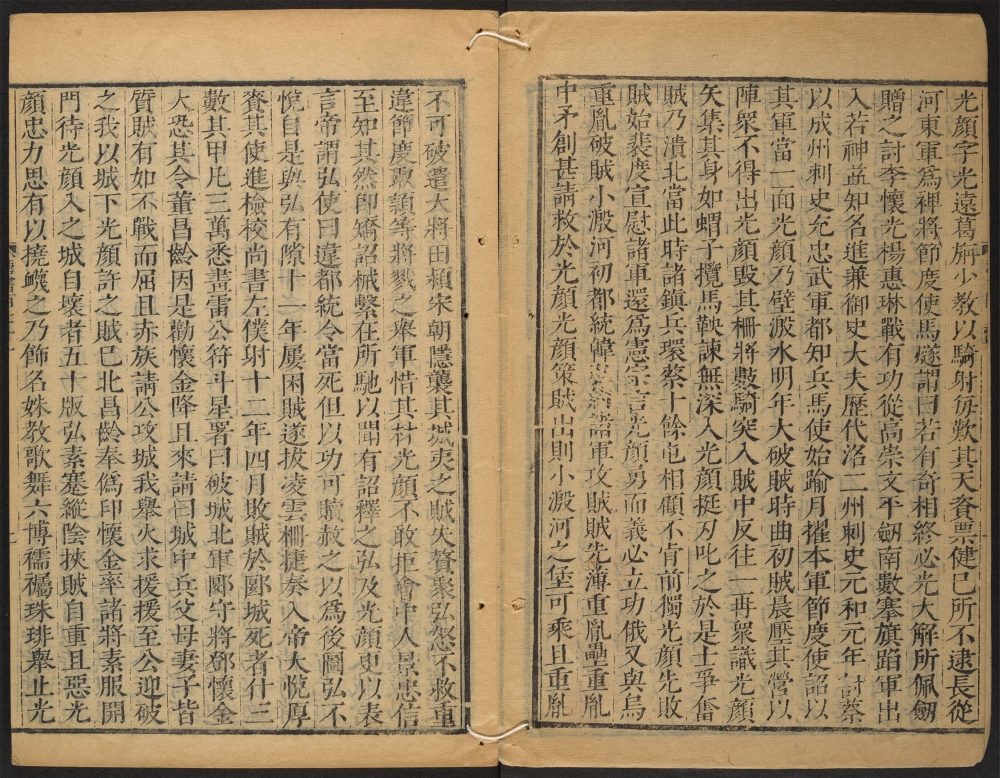 光顏字光遠葛旃少教以騎射每歎其天資票健己所不逮長從
河東軍爲裨將節度使馬燧謂曰若有奇相終必光大解所佩劒
贈之討李懷光楊惠琳戰有功從高崇文平劒南數搴旗蹈軍出
入若神益知名進兼御史大夫歷代洛二州刺史元和元年討蔡
以成州刺史充忠武軍都知兵馬使始踰月擢本軍節度使詔以
其軍當一面光顏乃壁溵水明年大破賊時曲初賊晨壓其營以
陣衆不得出光顏毀其柵將數騎突入賊中反往一再衆識光顏
矢集其身如蝟子攬馬鞅諫無深入光顏挺刃叱之於是士爭奮
賊乃潰北當此時諸鎮兵環蔡十餘屯相顧不肯前獨光顏先敗
賊始裴度宣慰諸軍還爲憲宗言光顏勇而義必立功俄又與烏
重胤破賊小溵河初都統諸軍攻賊賊先薄重胤壘重胤
中矛創甚請救於光顏光顏策賊出則小溵河之堡可乘且重胤
不可破遣大將田頴宋朝隱襲其城夷之賊失贅聚弘怒不救重
違節度取頴等將戮之舉軍惜其材光顏不敢拒會中人景忠信
至知其然卽矯詔械繫在所馳以聞有詔釋之弘及光顏更以表
言帝謂弘使曰違都統令當死但以功可贖赦之以爲後圖弘不
悅自是與弘有隙十一年屢困賊遂拔凌雲柵捷奏入帝大悅厚
賚其使進檢校尚書左僕射十二年四月敗賊於郾城死者什三
數其甲凡三萬悉畫雷公符斗星署曰破城北軍郾守將鄧懷金
大恐其令董昌齡因是勸懷金降且來請曰城中兵父母妻子皆
質賊有如不戰而屈且赤族請公攻城我舉火求援援至公迎破
之我以城下光顏許之賊已北昌齡奉僞印懷金率諸將素服開
門待光顏入之城自壞者五十版弘素蹇縱陰挾賊自重且惡光
顏忠力思有以撓衊之乃飾名姝教歌舞六博襦襹珠琲舉止光